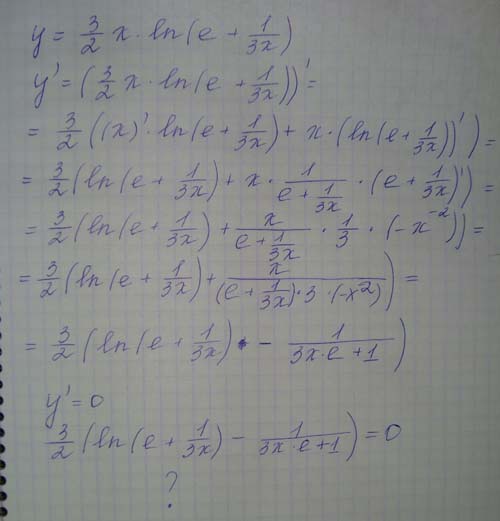 y = 3/2 x · ln(e + 1/3x)
y' = (3/2 x · ln(e + 1/3x))' =
= 3/2 ((x)' · ln(e + 1/3x) + x · (ln(e + 1/3x))') =
= 3/2 (ln(e + 1/3x) + x · 1/(e + 1/3x) · (e + 1/3x)') =
= 3/2 (ln(e + 1/3x) + x/(e + 1/3x) · 1/3 · (-x⁻²)) =
= 3/2 (ln(e + 1/3x) + x/((e + 1/3x) · 3 · (-x²))) =
= 3/2 (ln(e + 1/3x) - 1/(3x·e + 1))
y' = 0
3/2 (ln(e + 1/3x) - 1/(3x·e + 1)) = 0
?